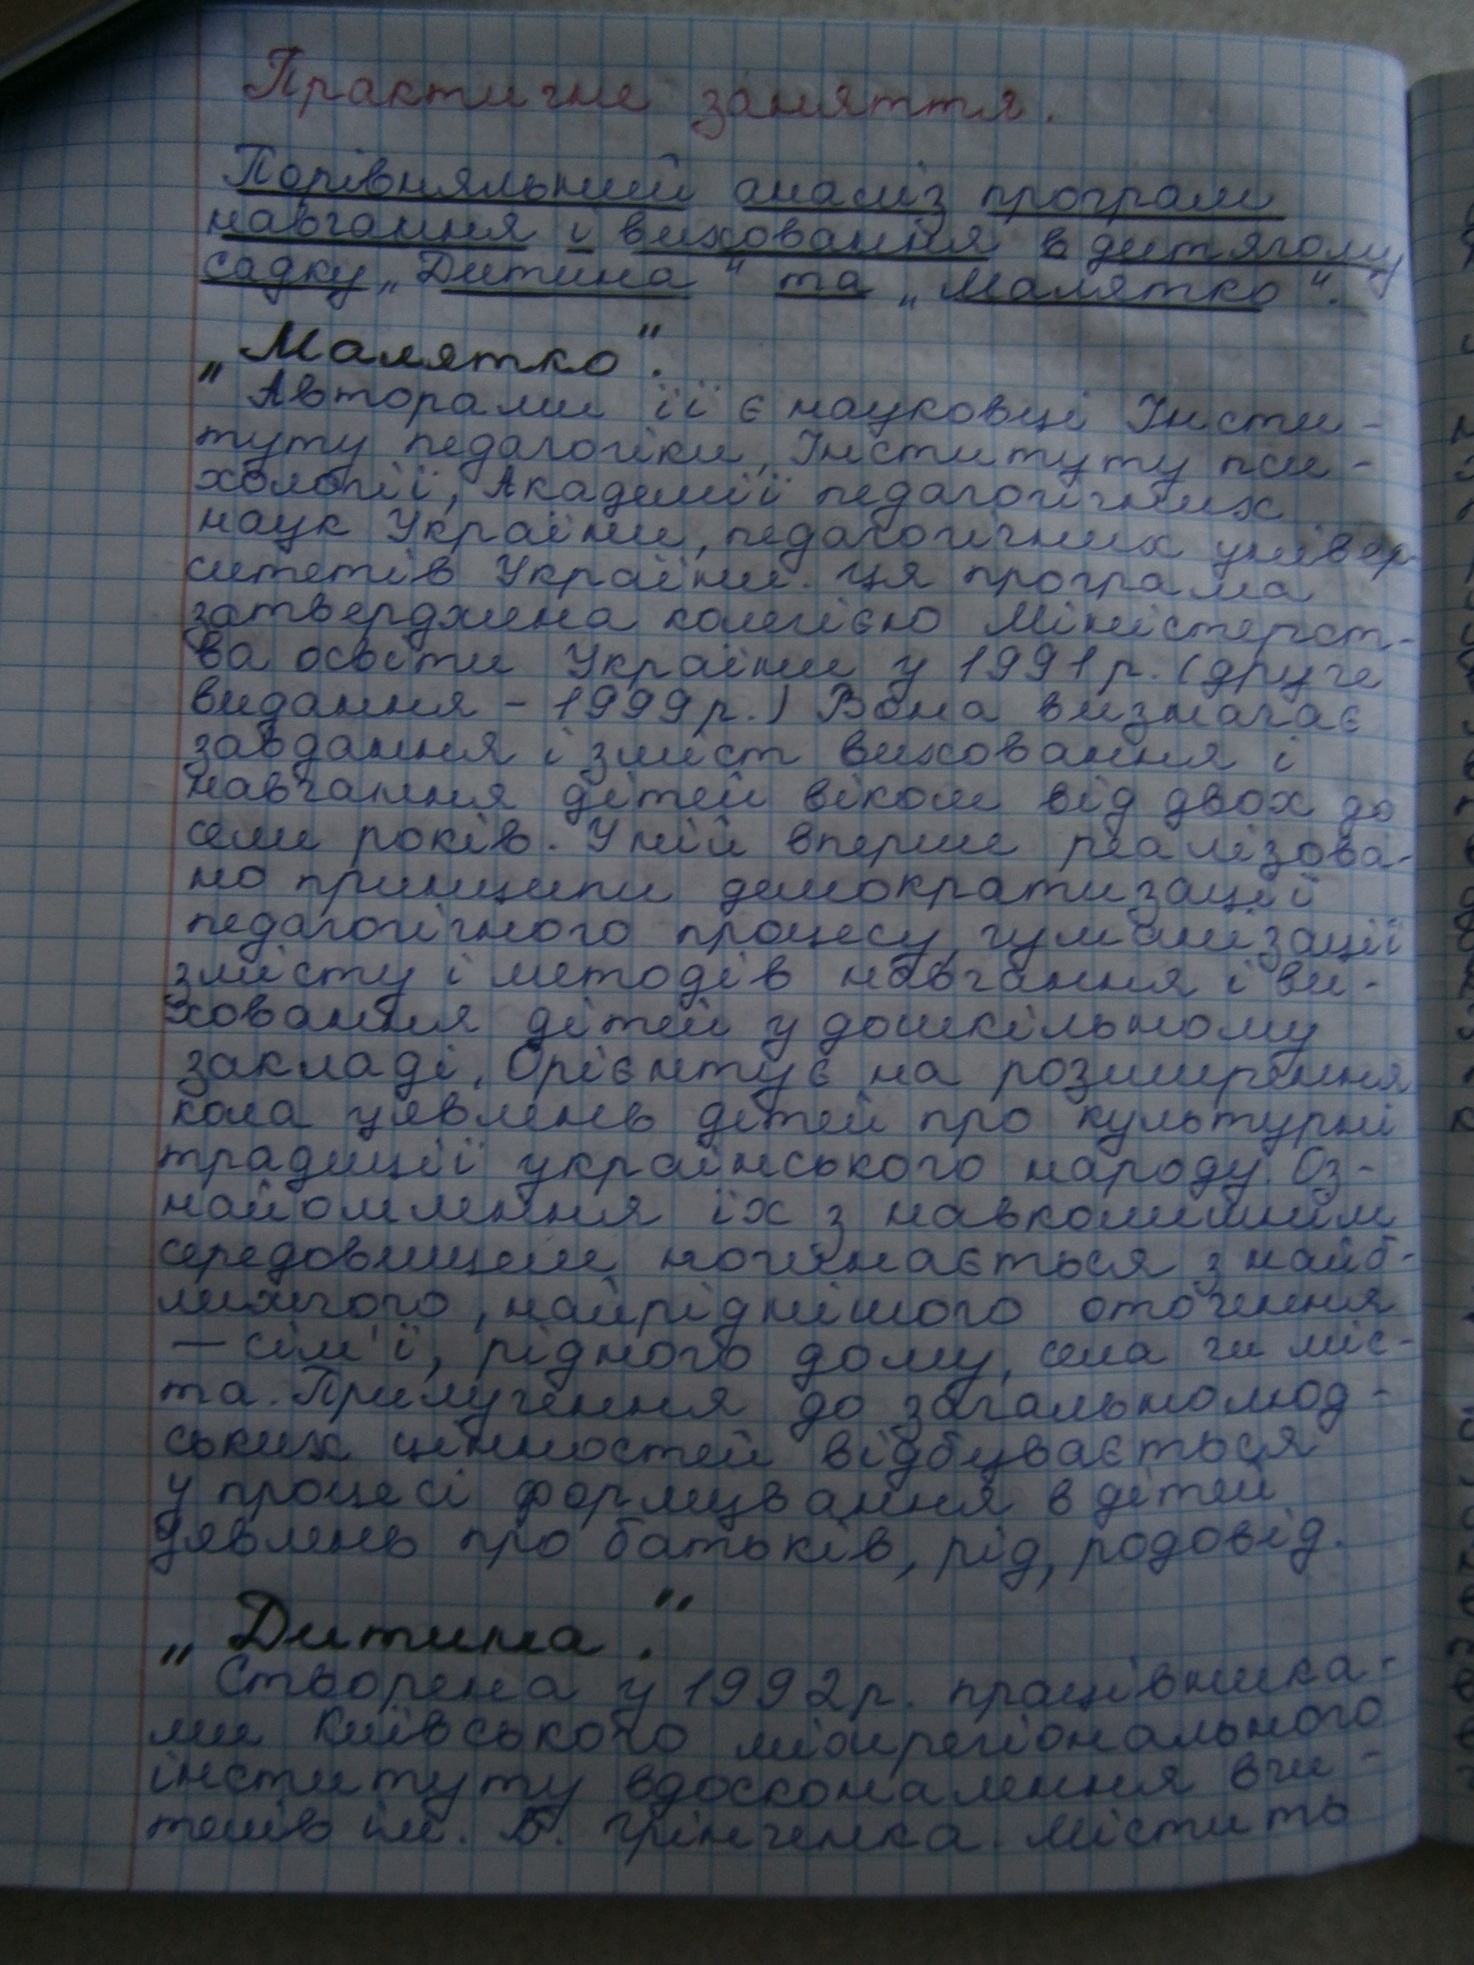 Практичне заняття.
Порівняльний аналіз програм
навчання і виховання в дитячому
садку „Дитина" та „Малятко".
„Малятко".
Авторами її є науковці Інсти-
туту педагогіки, Інституту пси-
хології, Академії педагогічних
наук України, педагогічних універ
ситетів України. Ця програма
затверджена колегією Міністерст-
ва освіти України у 1991р. (друге
видання - 1999р.) Вона визначає
завдання і зміст виховання і
навчання дітей віком від двох до
семи років. У ній вперше реалізова-
но принципи демократизації
педагогічного процесу, гуманізації
змісту і методів навчання і ви-
ховання дітей у дошкільному
закладі. Орієнтує на розширення
кола уявлень дітей про культурні
традиції українського народу. Оз-
найомлення їх з навколишнім
середовищем починається з найб-
лижчого, найріднішого оточення
— сім'ї, рідного дому, села чи міс-
та. Прилучення до загальнолюд-
ських цінностей відбувається
у процесі формування в дітей
уявлень про батьків, рід, родовід.
„Дитина".
Створена у 1992р. працівника-
ми Київського міжрегіонального
інституту вдосконалення вчи-
телів ім. Б. Грінченка. Містить